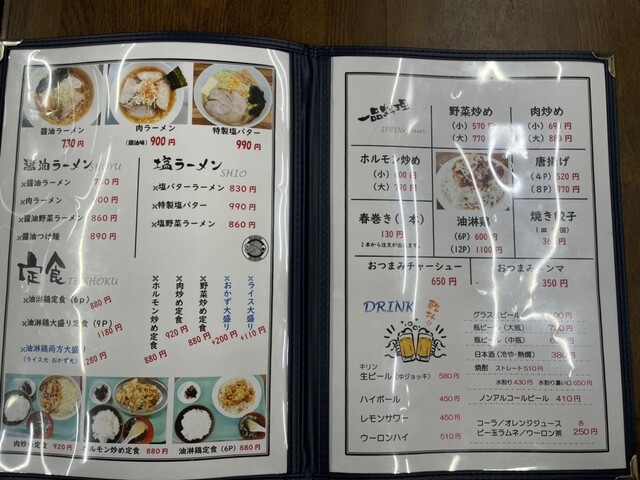 醤油ラーメン
730円
肉ラーメン
(醤油味) 900円
特製塩バター
990円
醤油ラーメン SHOYU
×醤油ラーメン
×肉ラーメン
×醤油野菜ラーメン 860円
×醤油つけ麺 890円
塩ラーメン SHIO
×塩バターラーメン 830円
×特製塩バター 990円
×塩野菜ラーメン 860円
定食 TEISHOKU
×油淋鶏定食 (6p) 880円
×油淋鶏大盛り定食 (9P) 1180円
×油淋鶏両方大盛り
(ライス大・おかず大) 280円
×ホルモン炒め定食 880円
×肉炒め定食 920円
×野菜炒め定食 880円
×おかず大盛り +200円
×ライス大盛り +110円
肉炒め定食 920円
ホルモン炒め定食 880円
油淋鶏定食 (6P) 880円
一品料理
野菜炒め
(小) 570円
(大) 770円
肉炒め
(小) 690円
(大) 880円
ホルモン炒め
(小)
(大)
油淋鶏
(6P) 600円
(12P) 1100円
唐揚げ
(4P) 520円
(8P)
春巻き
130円
2本から注文が出来ます。
焼き餃子
おつまみチャーシュー
650円
おつまみ
350円
DRINK
グラス ビール
瓶ビール (大瓶)
瓶ビール (中瓶)
日本酒 (冷や・熱燗) 380円
焼酎 ストレート 510円
水割り 430円 水割り濃い口 650円
キリン
生ビール (中ジョッキ) 580円
ノンアルコールビール 410円
ハイボール 450円
レモンサワー 450円
ウーロンハイ 510円
コーラ/オレンジジュース 各
ビー玉ラムネ/ウーロン茶 250円